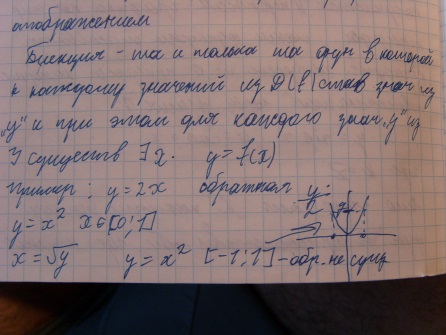 отображением
Биекция - та и только та фун в которой
к каждому значений из D(f) став знач из
"y" и при этом для каждого знач "y" из
Y существ ∃ x. y = f(x)
Пример: y = 2x обратная y/2
y = x² x ∈ [0; 1]
x = √y y = x² [-1; 1] - обр. не сущ